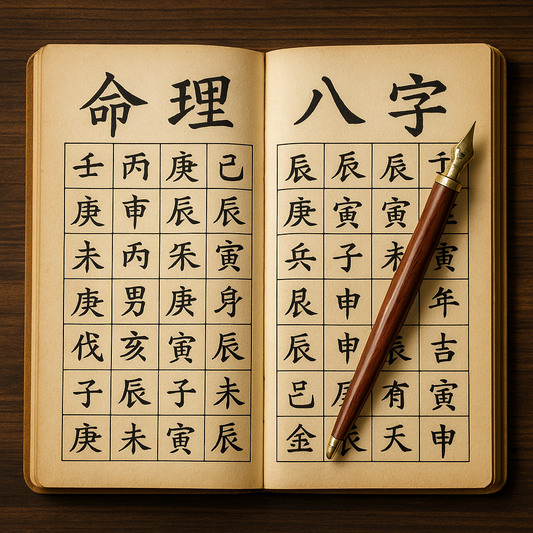 命理 八字
壬丙庚己 辰辰辰
庚申辰辰 庚寅寅
未丙寅 兵子未寅
庚男庚身 艮申年
伐亥寅辰 辰申辰吉
子辰子未 有寅
庚未寅辰 金辰天申